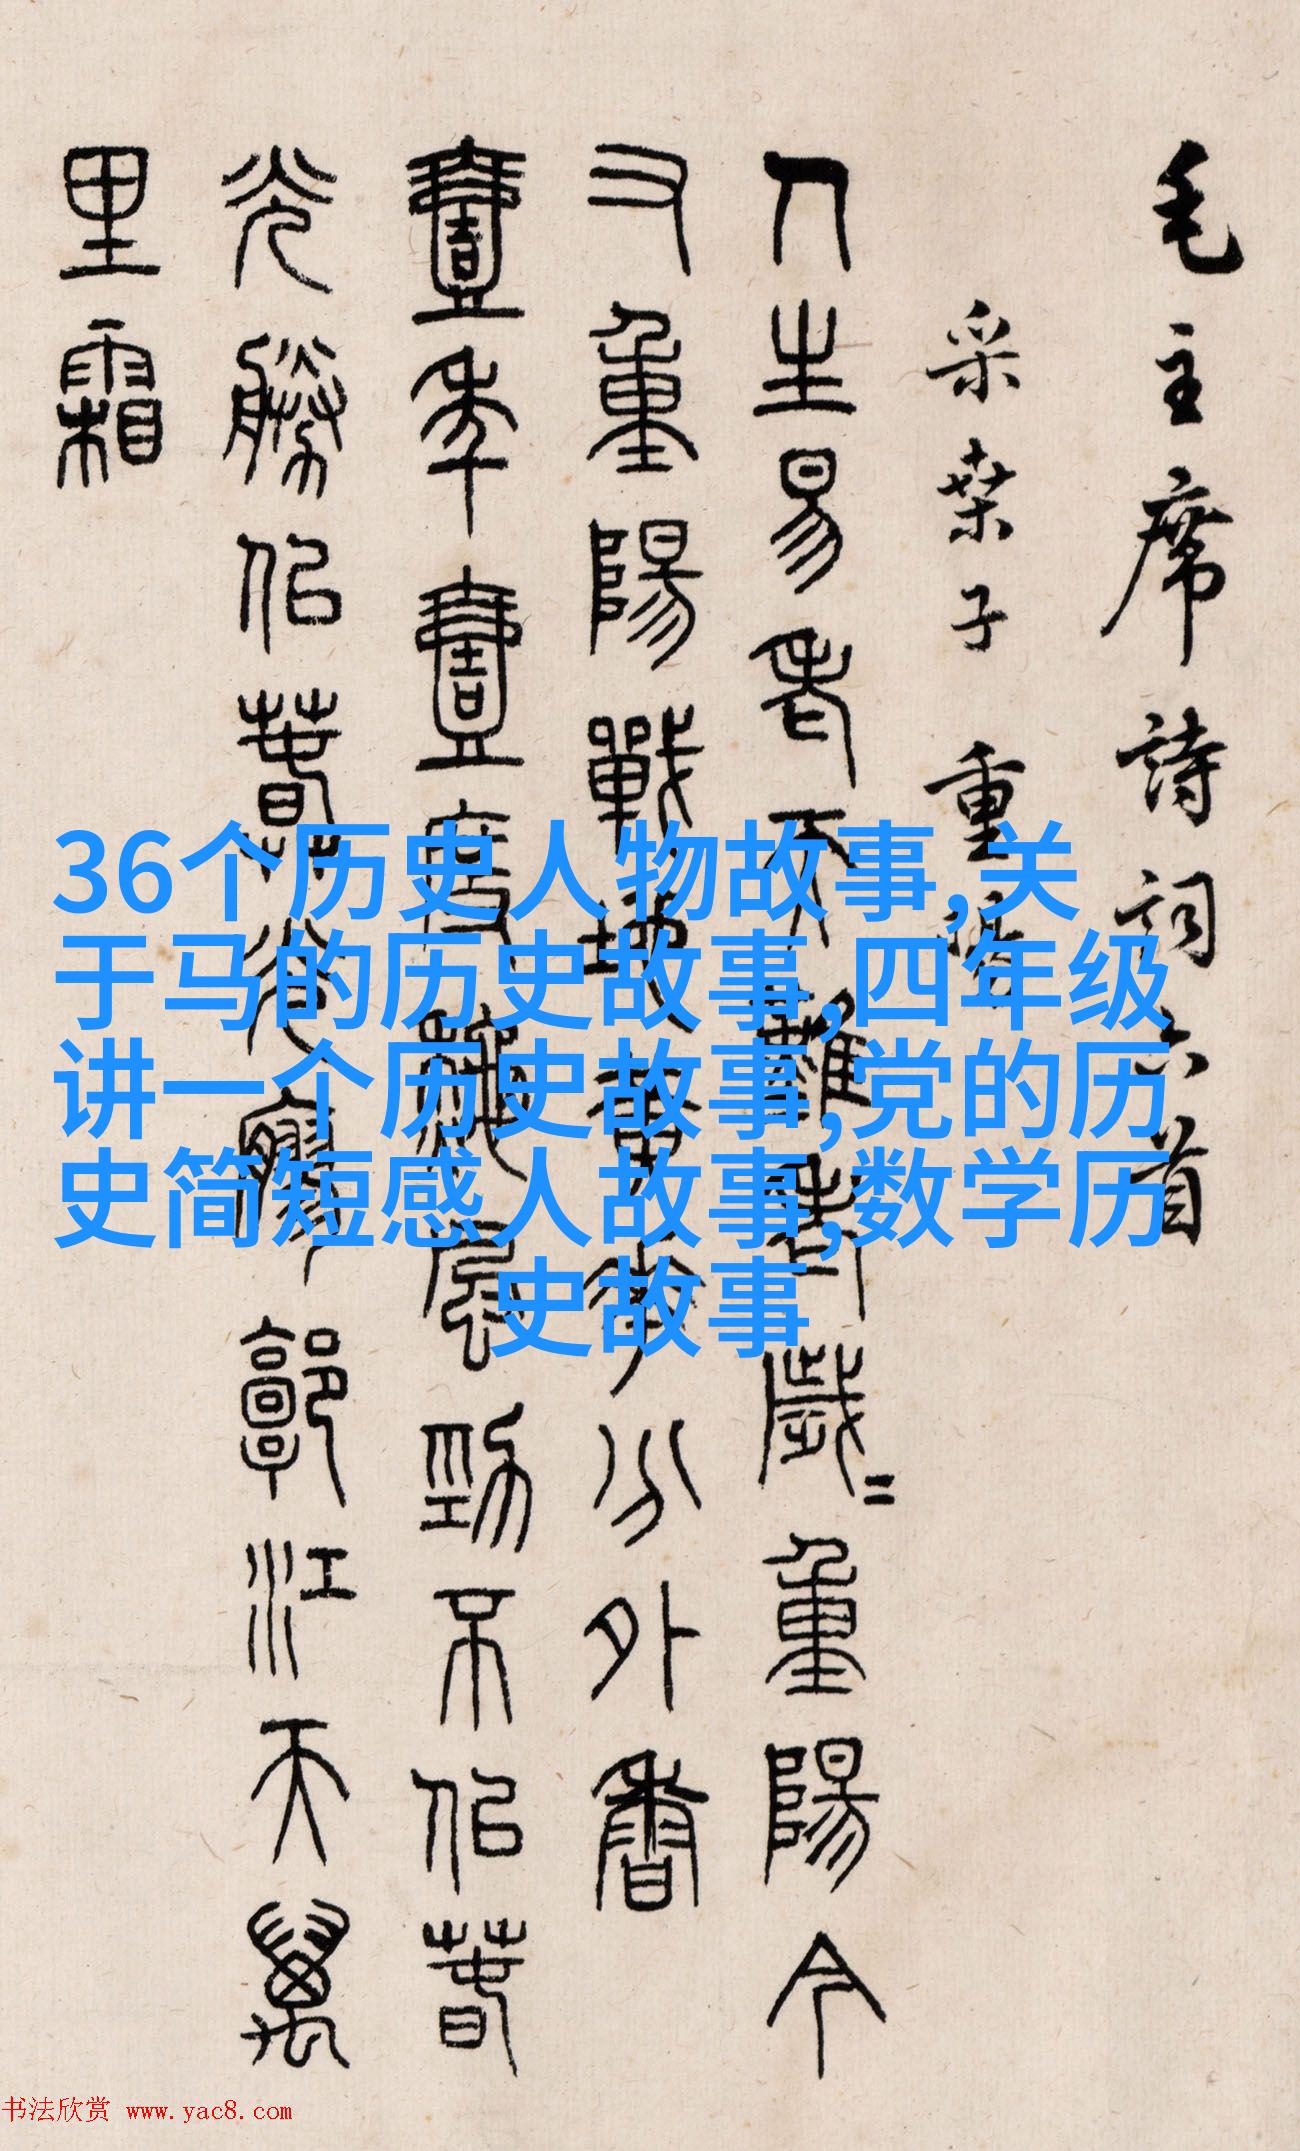 毛主席詩詞六首
采桑子 重陽
人生易老天難老歲＝重陽今
又重陽戰地黃花分外香
壹年壹度秋風勁不似春
光勝似春光寥郭江天萬
里霜
36个历史人物故事,关
于马的历史故事,四年级
讲一个历史故事,党的历
史简短感人故事,数学历
史故事
书法欣赏 www.yac8.com